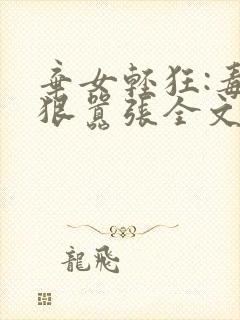 棄女輕狂:毒
狠囂張全文
龍飛